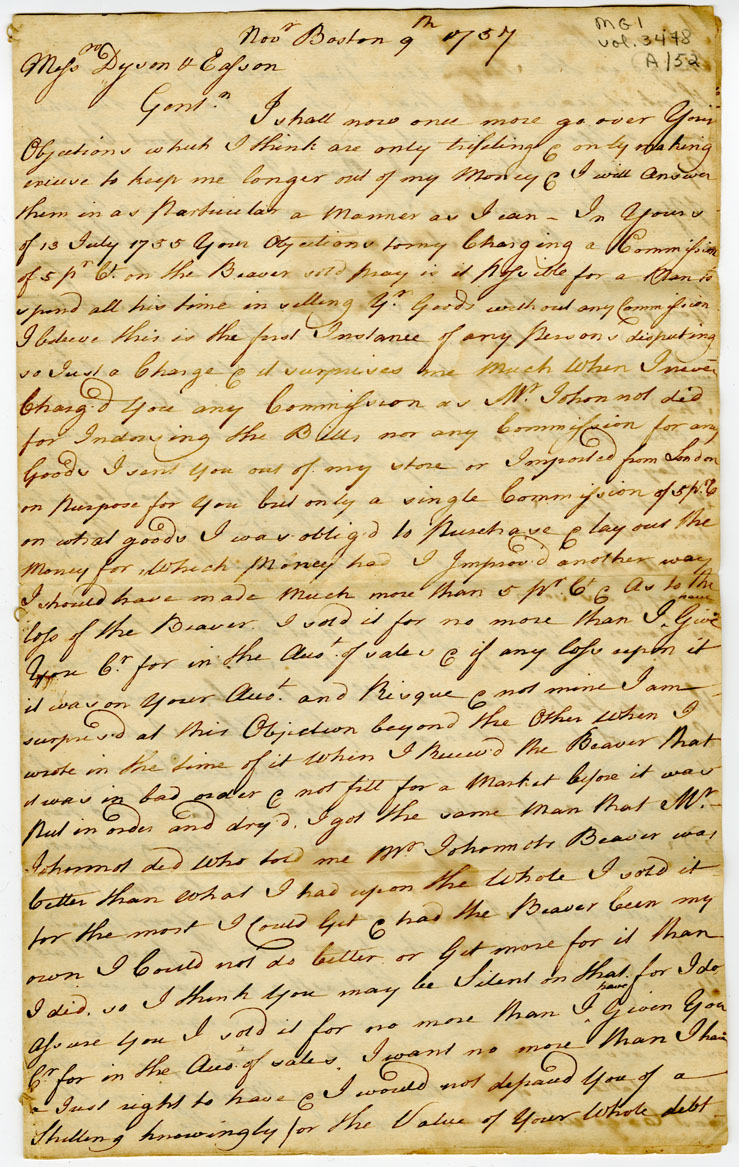 Novr Boston 9th 1757
MG1
vol. 3478
A/52
Messrs Dyson & Easson
Gentn
I shall now once more go over Your
Objections which I think are only trifeling & only making
excuse to keep me longer out of my Money & I will Answer
them in as Particular a Manner as I can – In Yours
of 13 July 1755 Your Objections to my Charging a Commission
of 5 pr Ct. on the Beaver sold pray is it Possible for a Man to
spend all his time in selling Yr. Goods without any Commission
I beleive this is the first Instance of any Persons disputing
so Just a Charge & it surprises me Much When I never
Charg'd You any Commission as Mr. Johonnot did
for Indorsing the Bills nor any Commission for any
Goods I sent You out of my store or Imported from London
on Purpose for You but only a single Commission of 5 pr. Ct
on what goods I was oblig'd to Purchase & lay out the
Money for, Which Money had I Improv'd another way
I should have made Much more than 5 pr. Ct & As to the
loss of the Beaver I sold it for no more than I have Give
You Cr. for in the Acct. of sales & if any Loss upon it
it was on Your Acct. and Risque & not mine I am
surpris'd at this Objection beyond the Other When I
wrote in the time of it When I Receiv'd the Beaver that
it was in bad order & not fitt for a Market before it was
Put in order and dry'd. I got the same Man that Mr.
Johonnot did Who told me Mr Johonnots Beaver was
better than What I had upon the Whole I sold it
for the most I Could Get & had the Beaver been my
own I Could not do better or Get more for it than
I did. so I think You may be Silent on that. for I do
Assure You I sold it for no more than I have Given You
Cr. for in the Acct. of sales. I want no more than I have
a Just right to have & I would not defraud You of a
Shilling knowingly for the Value of Your Whole debt